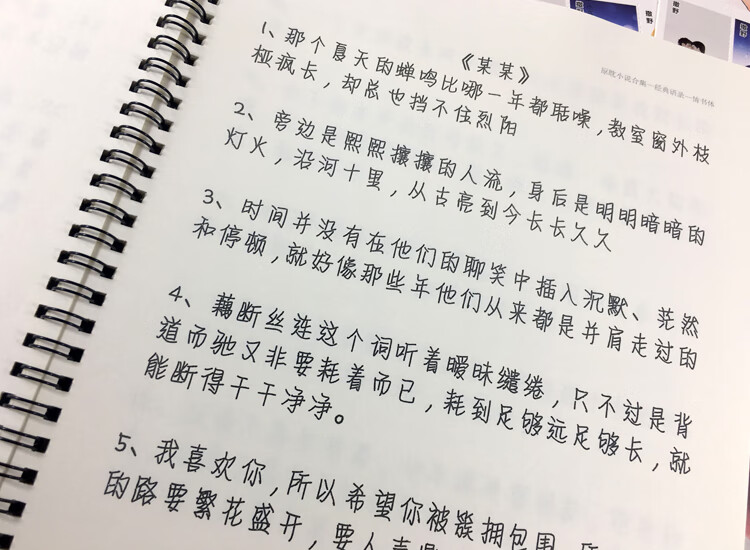 原耽小说合集—经典语录—情书体
《某某》
1、那个夏天的蝉鸣比哪一年都聒噪，教室窗外枝
桠疯长，却总也挡不住烈阳
2、旁边是熙熙攘攘的人流，身后是明明暗暗的
灯火，沿河十里，从古亮到今长长久久
3、时间并没有在他们的聊笑中插入沉默、茫然
和停顿，就好像那些年他们从来都是并肩走过的
4、藕断丝连这个词听着暧昧缱绻，只不过是背
道而驰又非要耗着而已，耗到足够远足够长，就
能断得干干净净。
5、我喜欢你，所以希望你被簇拥包围，
的路要繁花盛开，要人声
撒野
撒野